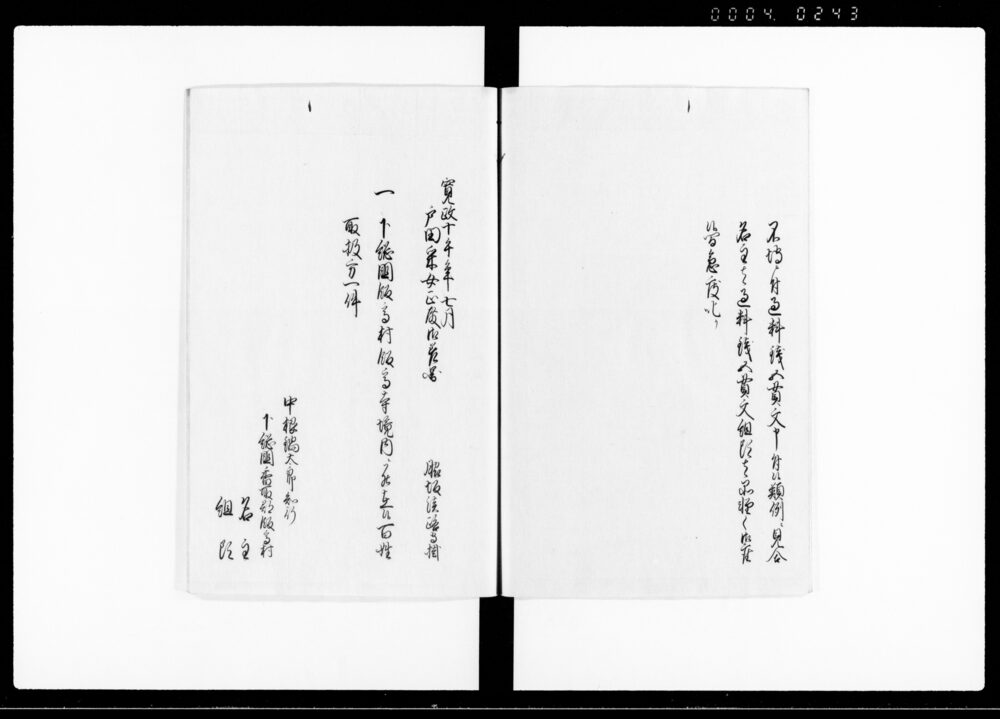 0004 0243
不埒ニ付過料銭五貫文申付候類例ニ見合
名主者過料銭五貫文組頭者不埒ニ御座
候間急度叱り
寛政十午年七月
戸田采女正殿御差図
脇坂淡路守掛
一 下総国飯高村飯高寺境内ニ罷在候百姓
取扱方一件
中根鍋太郎知行
下総国香取郡飯高村
名主
組頭